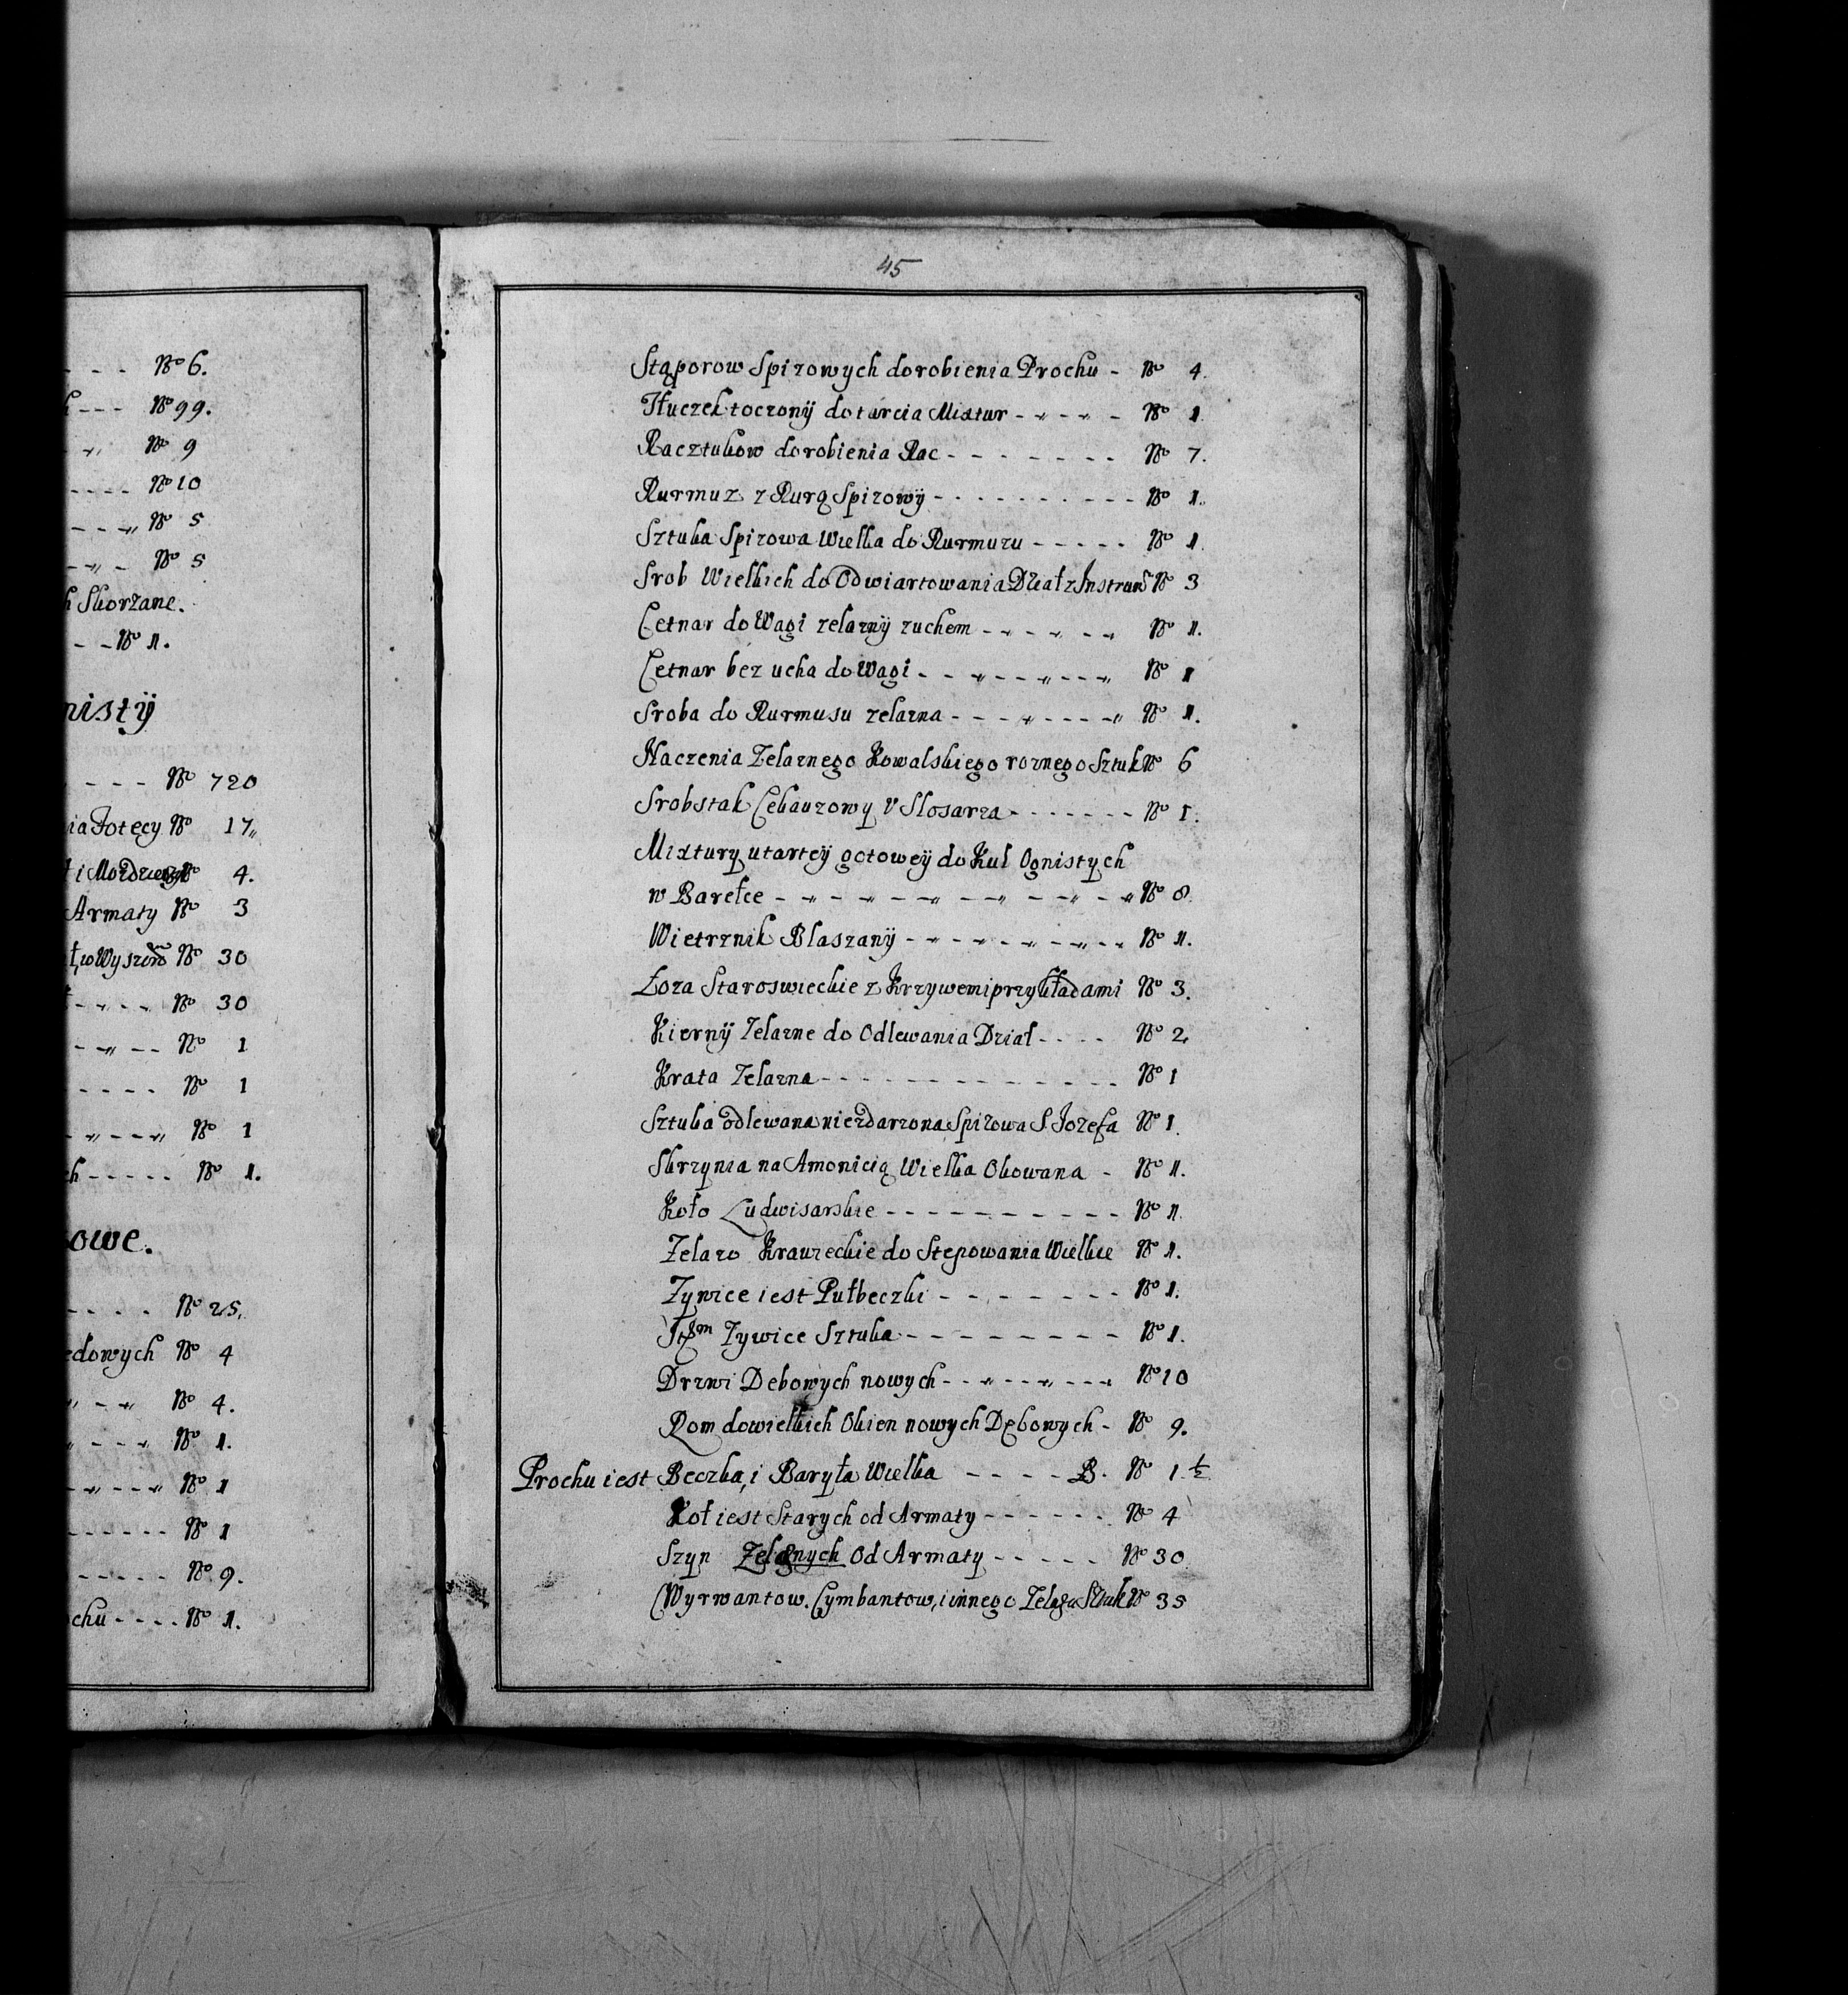 - - - No 6.
- - - No 99.
No 9
- - - - No 10
- - - No 5
- - - No 5
Skorzane.
- - No 1.
nisty
- - - - No 720
Fotecy No 17
i No 4.
Armaty No 3
No 30
- - - - No 30
- - - - No 1
- - - - - No 1
- - - - No 1
- - - - - No 1.
owe.
- - - - No 25.
edowych No 4
- - No 4.
- - - No 1.
- - - - No 1
- - - - - - No 1
- - - - - No 9.
chu - - - - No 1.
45
Stąporow Spizowych do robienia Prochu - No 4.
Tłuczek toczonÿ do tarcia Mixtur - - - - - No 1.
Racztukow do robienia Rac - - - - - - - No 7.
Rurmuz z Rurą Spizowÿ - - - - - - - - - - No 1.
Sztuka Spizowa Wielka do Rurmuzu - - - - - No 1.
Srob Wielkich do Odwiartowania Dział z Instrum No 3
Cetnar do Wagi zelaznÿ z uchem - - - - - - No 1.
Cetnar bez ucha do Wagi - - - - - - - - No 1
Sroba do Rurmusu zelazna - - - - - - - - No 1.
Naczenia Zelaznego Kowalskiego roznego Sztuk No 6
Srobstak Cekauzowy v Slosarza - - - - - - - No 1.
Mixtury utarteÿ gotoweÿ do Kul Ognistych
w Barełce - - - - - - - - - - - No 8.
Wietrznik Blaszanÿ - - - - - - - - - No 1.
Łoza Staroswieckie z Krzywemi przykładami No 3.
Kiernÿ Zelazne do Odlewania Dział - - - - No 2.
Krata Zelazna - - - - - - - - - - - - - No 1
Sztuka odlewana niezdarzona Spizowa S. Jozefa No 1.
Skrzynia na Amonicią Wielka Okowana - No 1.
Koło Ludwisarskie - - - - - - - - - - No 1.
Zelazo Krawieckie do Stepowania Wielkie No 1.
Zywice iest Pułbeczki - - - - - - - - No 1.
Itẽm Zywice Sztuka - - - - - - - - - No 1.
Drzwi Debowych nowych - - - - - - - - No 10
Rom do wielkich Okien nowych Dębowych - No 9.
Prochu iest Beczka, i Baryła Wielka - - - - B. No 1 ½
Koł iest Starych od Armaty - - - - - - No 4
Szyn Zelaznych Od Armaty - - - - - No 30
Wyrwantow. Cymbantow, i innego Zelaza Sztuk No 35